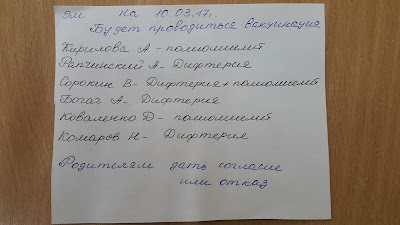 9м. на 10.03.17г.
Будет проводиться вакцинация
Кирилова А - полиомиелит
Рапчинский А - Дифтерия
Сорокин В - Дифтерия + полиомиелит
Богач А - Дифтерия
Коваленко Д - полиомиелит
Комаров Н - Дифтерия
Родителям дать согласие
или отказ